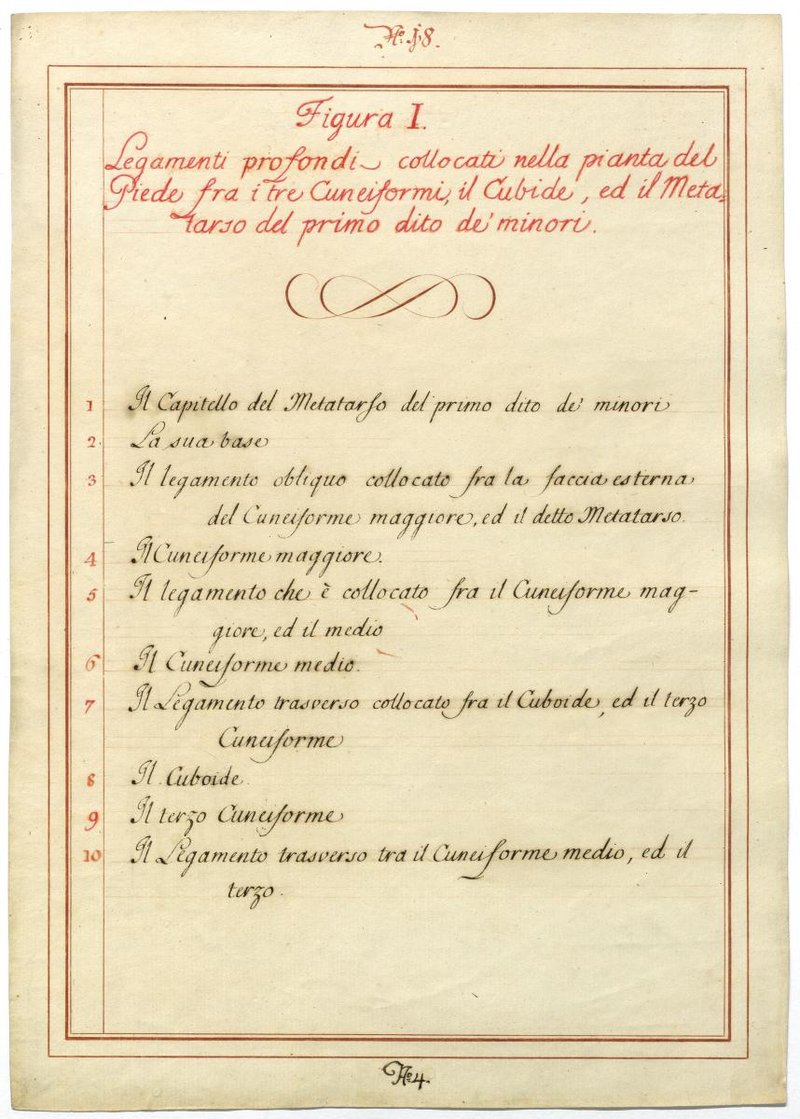 No. 18.
Figura I.
Legamenti profondi collocati nella pianta del
Piede fra i tre Cuneiformi, il Cubide, ed il Meta=
tarso del primo dito de' minori.
1 Il Capitello del Metatarso del primo dito de' minori
2. La sua base
3 Il legamento obliquo collocato fra la faccia esterna
del Cuneiforme maggiore, ed il detto Metatarso.
4 Il Cuneiforme maggiore.
5 Il legamento che è collocato fra il Cuneiforme mag-
giore, ed il medio
6 Il Cuneiforme medio.
7 Il Legamento trasverso collocato fra il Cuboide, ed il terzo
Cuneiforme
8 Il Cuboide.
9 Il terzo Cuneiforme
10 Il Legamento trasverso tra il Cuneiforme medio, ed il
terzo.
No. 4.